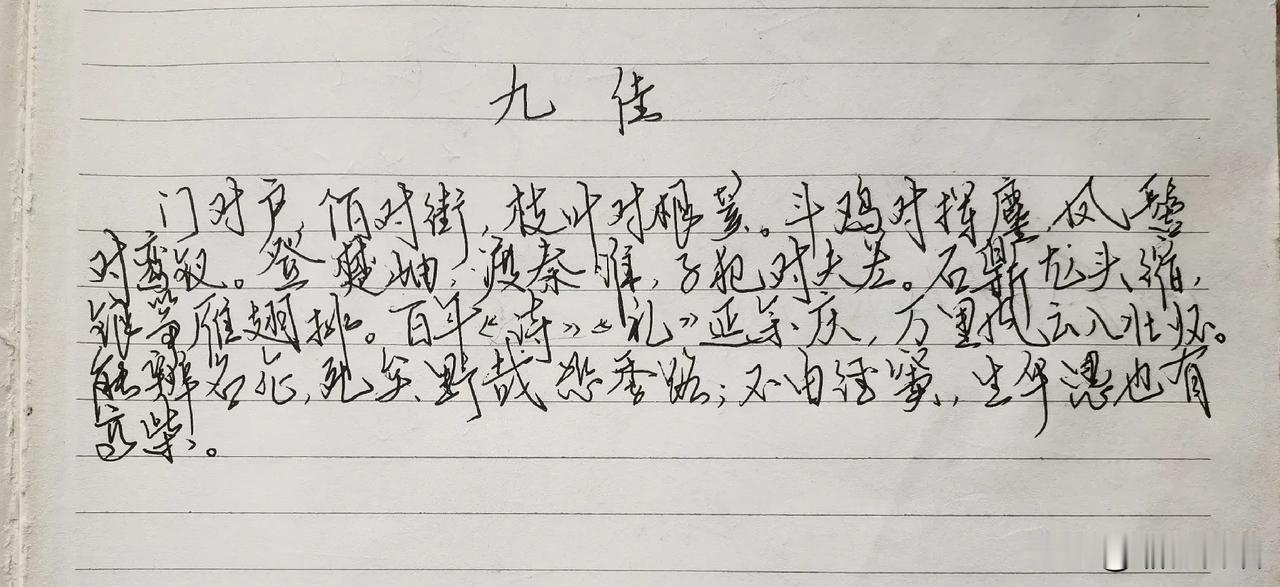 九佳
门对户,陌对街,枝叶对根荄。斗鸡对挥麈,凤髻
对鸾钗。登楚岫,渡秦淮,子犯对夫差。石鼎龙头缩,
银筝雁翅排。百年《诗》《礼》延余庆,万里风云入壮怀。
能辨名,死矣野哉悲季路;不由径窦,生乎愚也有
高柴。